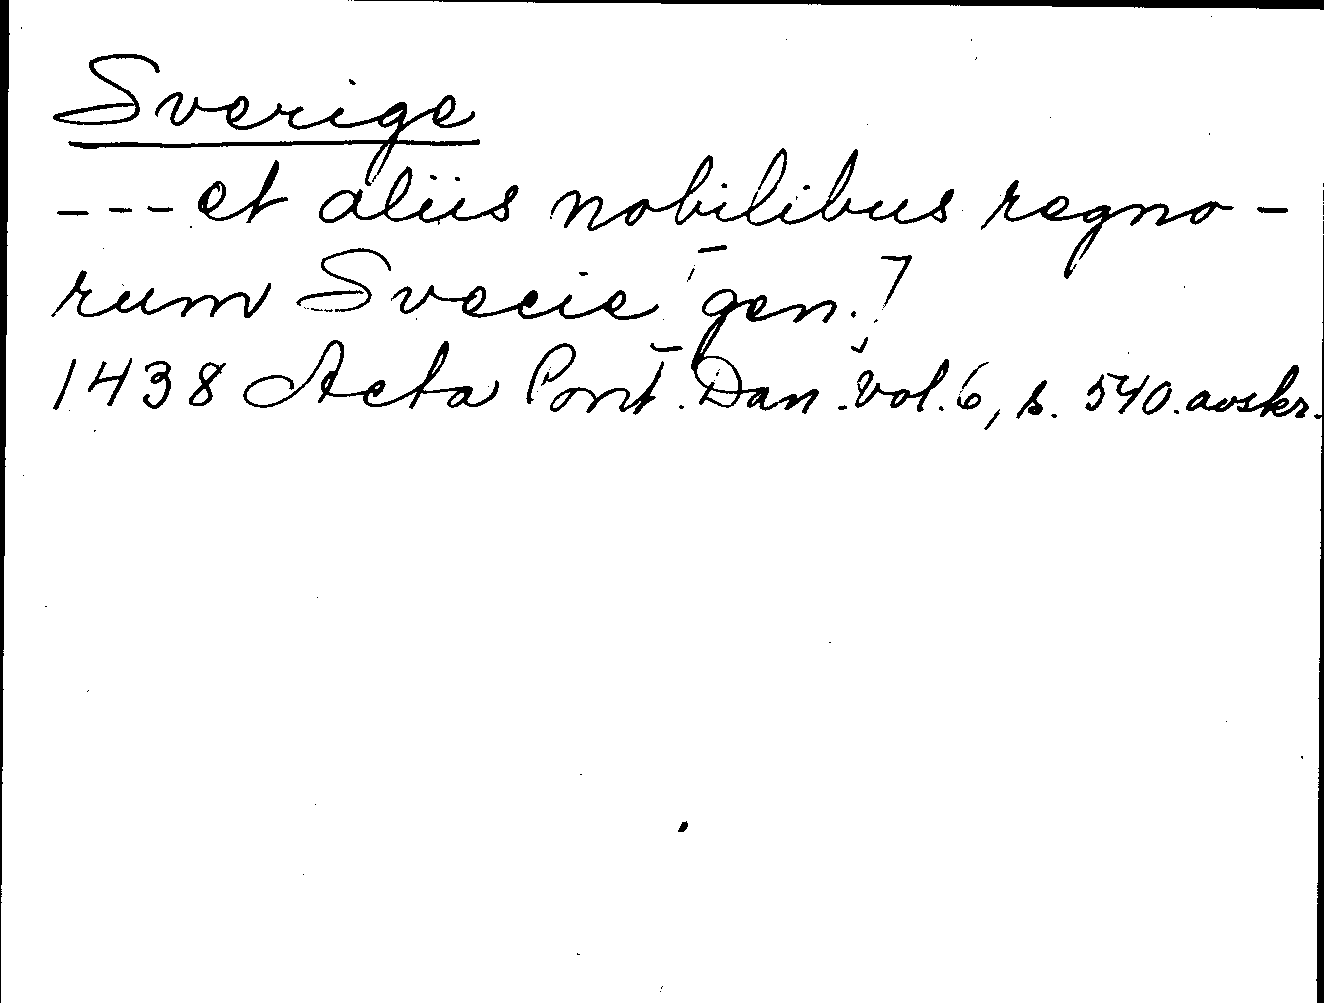 Sverige
---et aliis nobilibus regno-
rum Svecie [gen.]
1438 Acta Pont. Dan. vol. 6, s. 540. avskr.